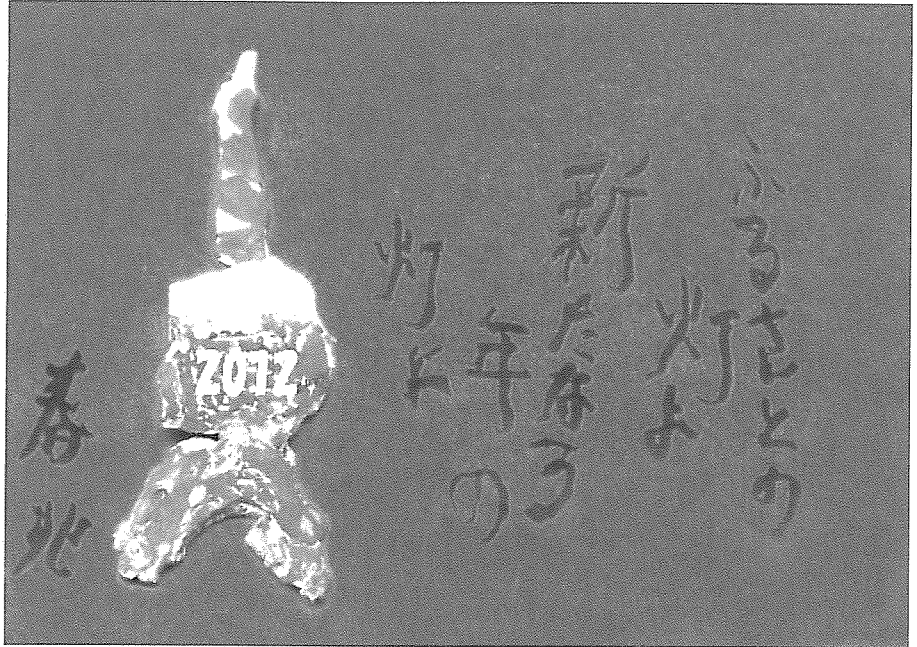 ふるさとの
灯よ
新たなる
年の
灯よ
2012
春火